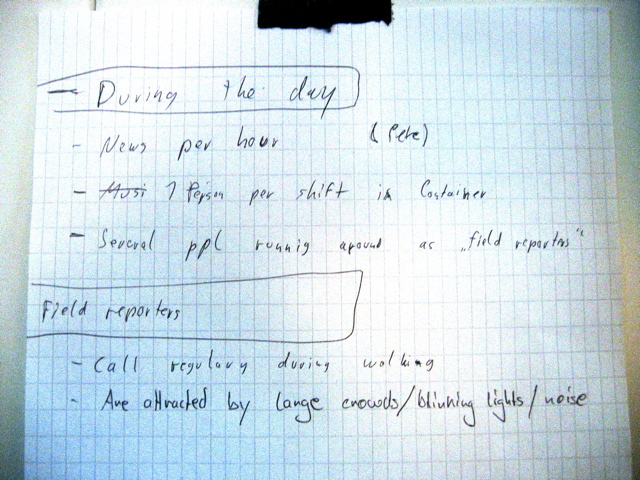 – During the day
- News per hour (Pete)
- Musi 1 Person per shift in Container
- Several ppl runnig around as „field reporters“
Field reporters
- Call regulary during walking
- Are attracted by large crowds/blinking lights/noise